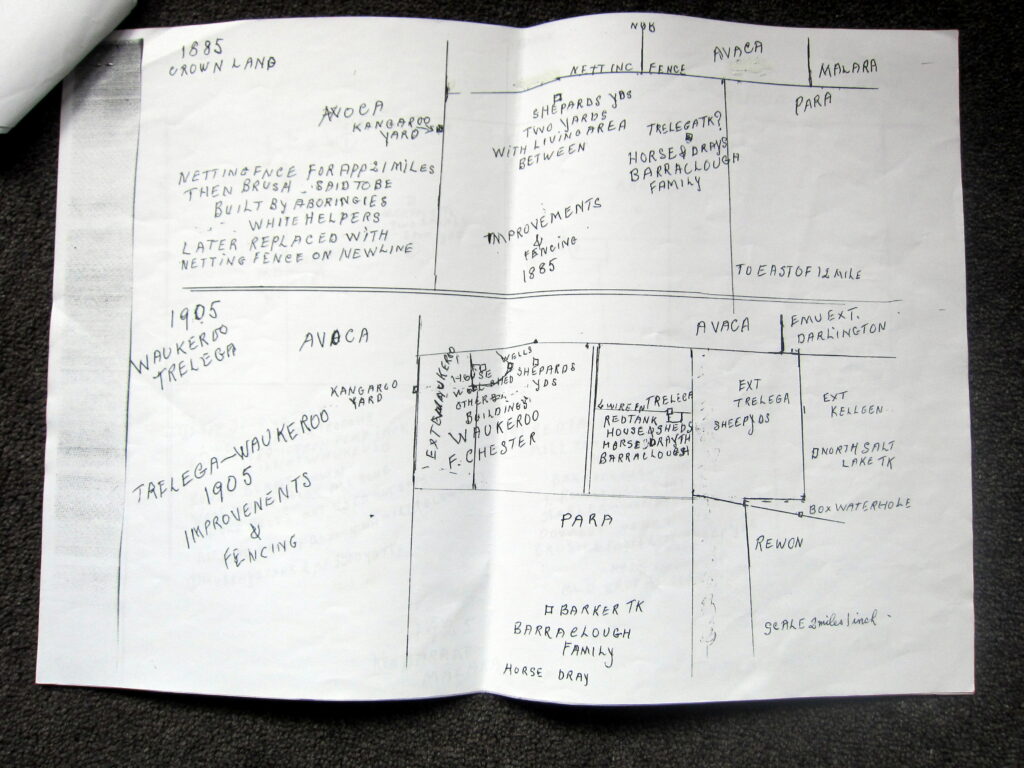 1885
CROWN LAND
NETTING FENCE
AVACA
MALARA
PARA
AVOCA
KANGAROO
YARD
SHEPARDS YDS
TWO YARDS
WITH LIVING AREA
BETWEEN
TRELEGA TK?
HORSE & DRAYS
BARRACLOUGH
FAMILY
NETTING FNCE FOR APP 21 MILES
THEN BRUSH SAID TO BE
BUILT BY ABORINGIES
WHITE HELPERS
LATER REPLACED WITH
NETTING FENCE ON NEW LINE
IMPROVEMENTS
&
FENCING
1885
TO EAST OF 12 MILE
1905
WAUKEROO
TRELEGA
AVOCA
AVACA
EMU EXT.
DARLINGTON
KANGAROO
YARD
EXTE WAUKEROO
HOUSE
WOOL SHED
OTHER
BUILDINGS
WAUKEROO
F. CHESTER
WELLS
SHEPARDS
YDS
WIRE FN
TRELEGA
RED TANK
HOUSE & SHEDS
HORSE & DRAY TH
BARRACLOUGH
EXT
TRELEGA
SHEEP YDS
EXT
KELLGEN
NORTH SALT
LAKE TK
BOX WATERHOLE
TRELEGA-WAUKEROO
1905
IMPROVENENTS
&
FENCING
PARA
REWON
BARKER TK
BARRACLOUGH
FAMILY
HORSE DRAY
SCALE 2 miles 1 inch